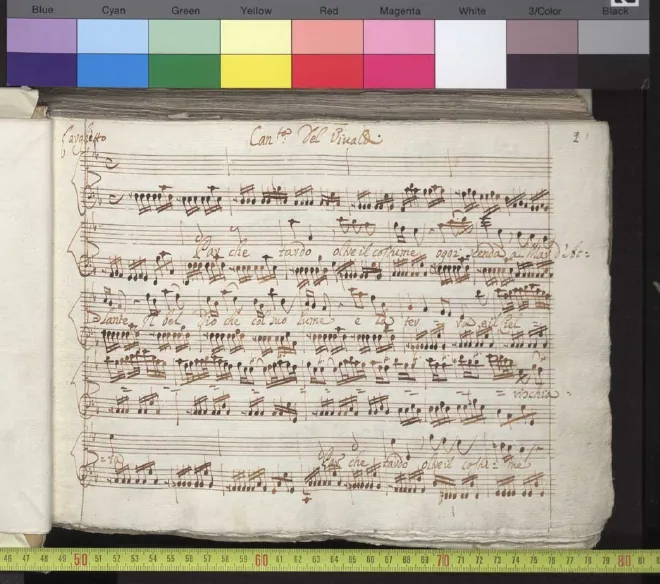 Blue Cyan Green Yellow Red Magenta White 3/Color Black
Larghetto Can.ta Del Vivaldi 1
Par che tardo oltre il costume ogn:
lante il bel Dio che col suo lume e la ter
Par che tardo oltre il costu= me
46 47 48 49 50 51 52 53 54 55 56 57 58 59 60 61 62 63 64 65 66 67 68 69 70 71 72 73 74 75 76 77 78 79 80 81